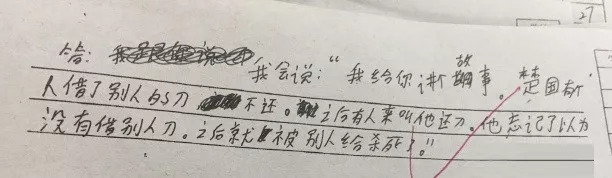 27
答:我会说:“我给你讲个故事。楚国有个
人借了别人的刀不还。之后有人来叫他还刀。他忘记了以为
没有借别人刀。之后就被别人给杀死了。”